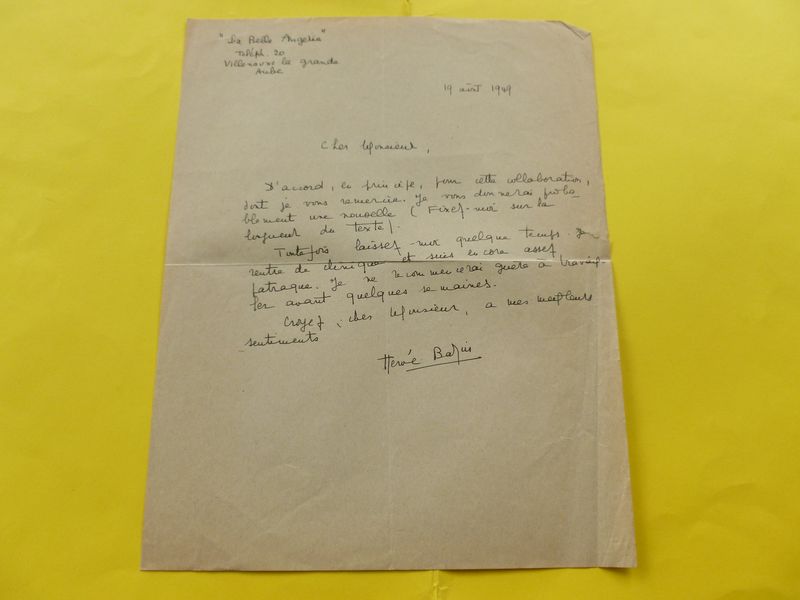 "La Belle Angerie"
Téléph. 20
Villenauxe la grande
Aube
19 août 1949
Cher Monsieur,
D'accord, en principe, pour cette collaboration,
dont je vous remercie. Je vous donnerai proba-
blement une nouvelle (Fixez-moi sur la
longueur du texte).
Toutefois laissez-moi quelque temps. Je
rentre de clinique et suis encore assez
patraque. Je ne recommencerai guère à travail-
ler avant quelques semaines.
Croyez, cher Monsieur, à mes meilleurs
sentiments
Hervé Bazin